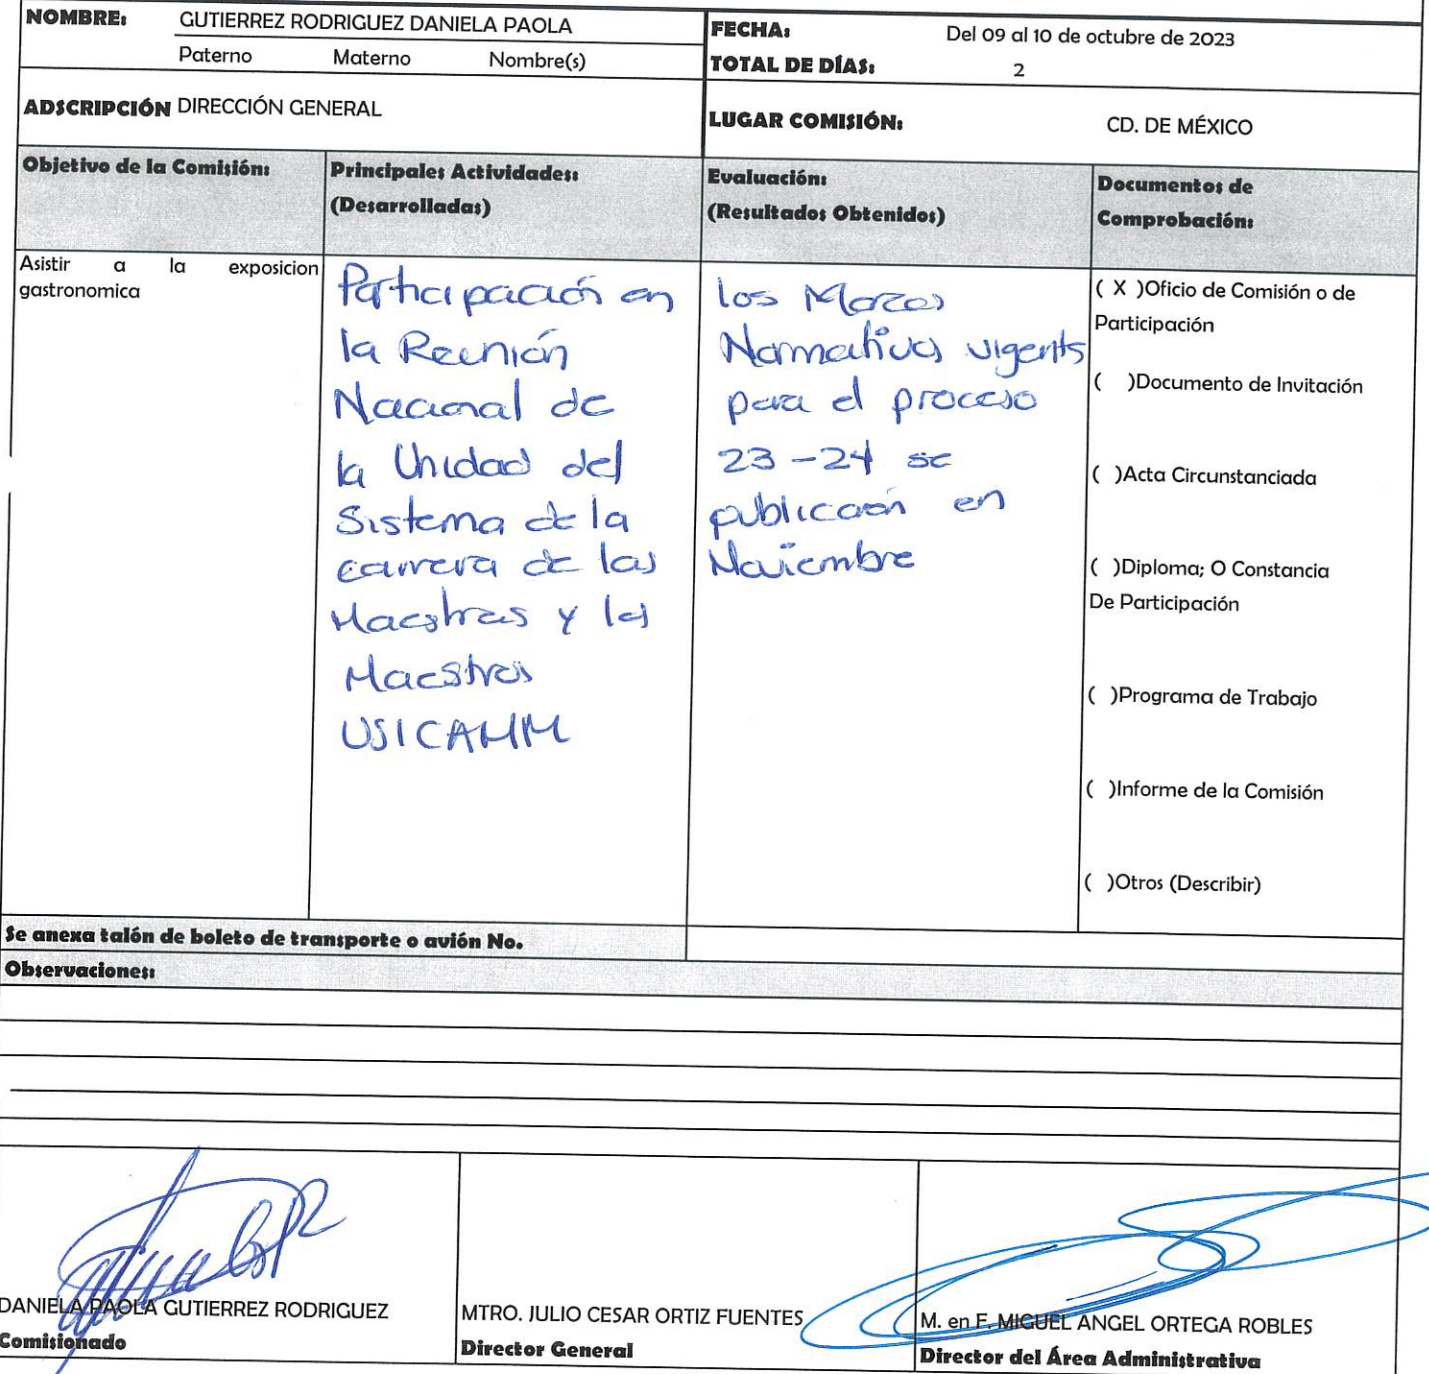 NOMBRE: GUTIERREZ RODRIGUEZ DANIELA PAOLA
Paterno Materno Nombre(s)
FECHA: Del 09 al 10 de octubre de 2023
TOTAL DE DÍAS: 2
ADSCRIPCIÓN DIRECCIÓN GENERAL
LUGAR COMISIÓN: CD. DE MÉXICO
Objetivo de la Comisión:
Principales Actividades:
(Desarrolladas)
Evaluación:
(Resultados Obtenidos)
Documentos de
Comprobación:
Asistir a la exposicion
gastronomica
Participación en
la Reunión
Nacional de
la Unidad del
Sistema de la
carrera de las
Maestras y los
Maestros
USICAMM
los Marcos
Normativos vigents
para el proceso
23-24 se
publicaon en
Noviembre
( X )Oficio de Comisión o de
Participación
( )Documento de Invitación
( )Acta Circunstanciada
( )Diploma; O Constancia
De Participación
( )Programa de Trabajo
( )Informe de la Comisión
( )Otros (Describir)
Se anexa talón de boleto de transporte o avión No.
Observaciones:
DANIELA PAOLA GUTIERREZ RODRIGUEZ
Comisionado
MTRO. JULIO CESAR ORTIZ FUENTES
Director General
M. en F. MIGUEL ANGEL ORTEGA ROBLES
Director del Área Administrativa